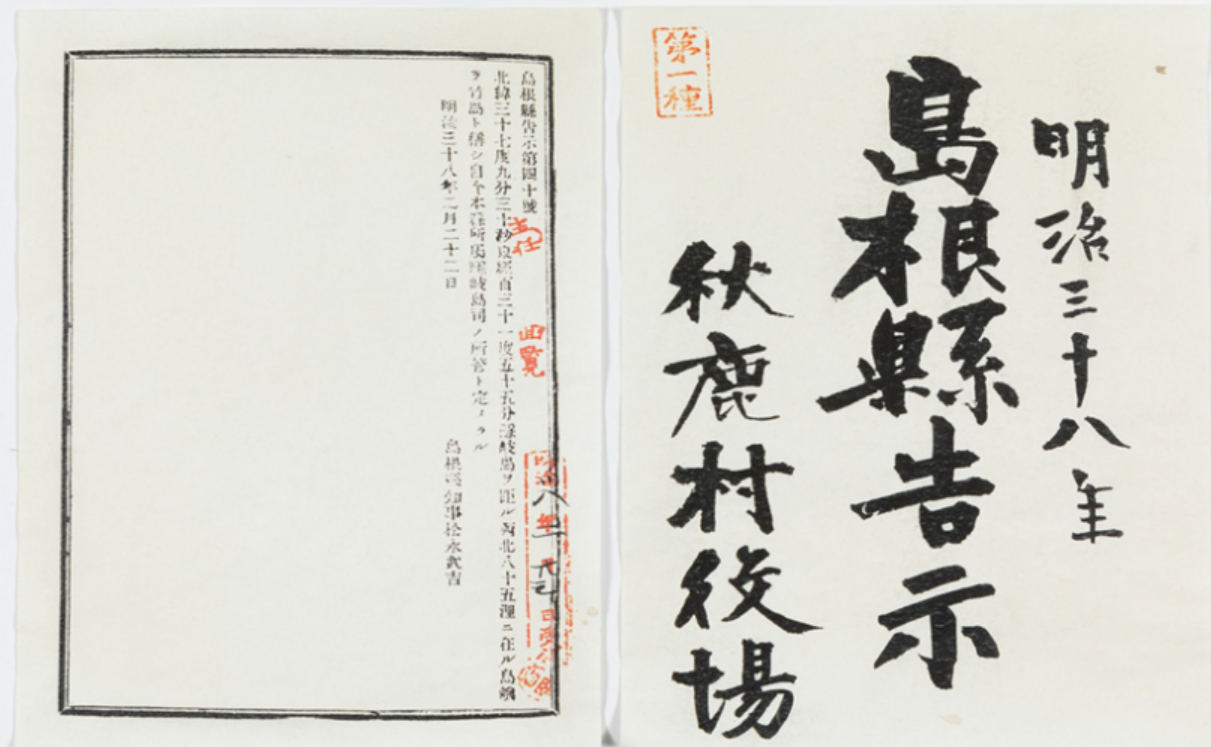 第一種
明治三十八年
島根縣告示
秋鹿村役場
島根縣告示第四十號
北緯三十七度九分三十秒東經百三十一度五十五分隱岐島ヲ距ル西北八十五浬ニ在ル島嶼
ヲ竹島ト稱シ自今本縣所屬隱岐島司ノ所管ト定メラル
明治三十八年二月二十二日
島根縣知事松永武吉
主任
回覽